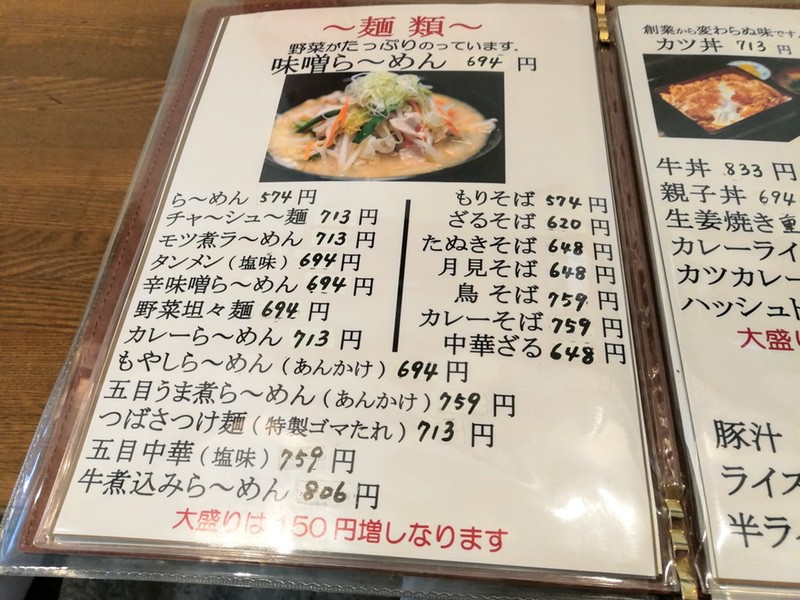 ～麺 類～
野菜がたっぷりのっています。
味噌ら～めん 694 円
ら～めん 574 円
チャ～シュ～麺 713 円
モツ煮ラ～めん 713 円
タンメン（塩味）694 円
辛味噌ら～めん 694 円
野菜坦々麺 694 円
カレーら～めん 713 円
もやしら～めん（あんかけ）694 円
五目うま煮ら～めん（あんかけ）759 円
つばさつけ麺（特製ゴマたれ）713 円
五目中華（塩味）759 円
牛煮込みら～めん 806 円
もりそば 574 円
ざるそば 620 円
たぬきそば 648 円
月見そば 648 円
鳥 そば 759 円
カレーそば 759 円
中華ざる 648 円
大盛りは 150 円増しなります
創業から変わらぬ味です
カツ丼 713 円
牛丼 833 円
親子丼 694
生姜焼き重
カレーライ
カツカレー
ハッシュド
大盛り
豚汁
ライス
半ラ